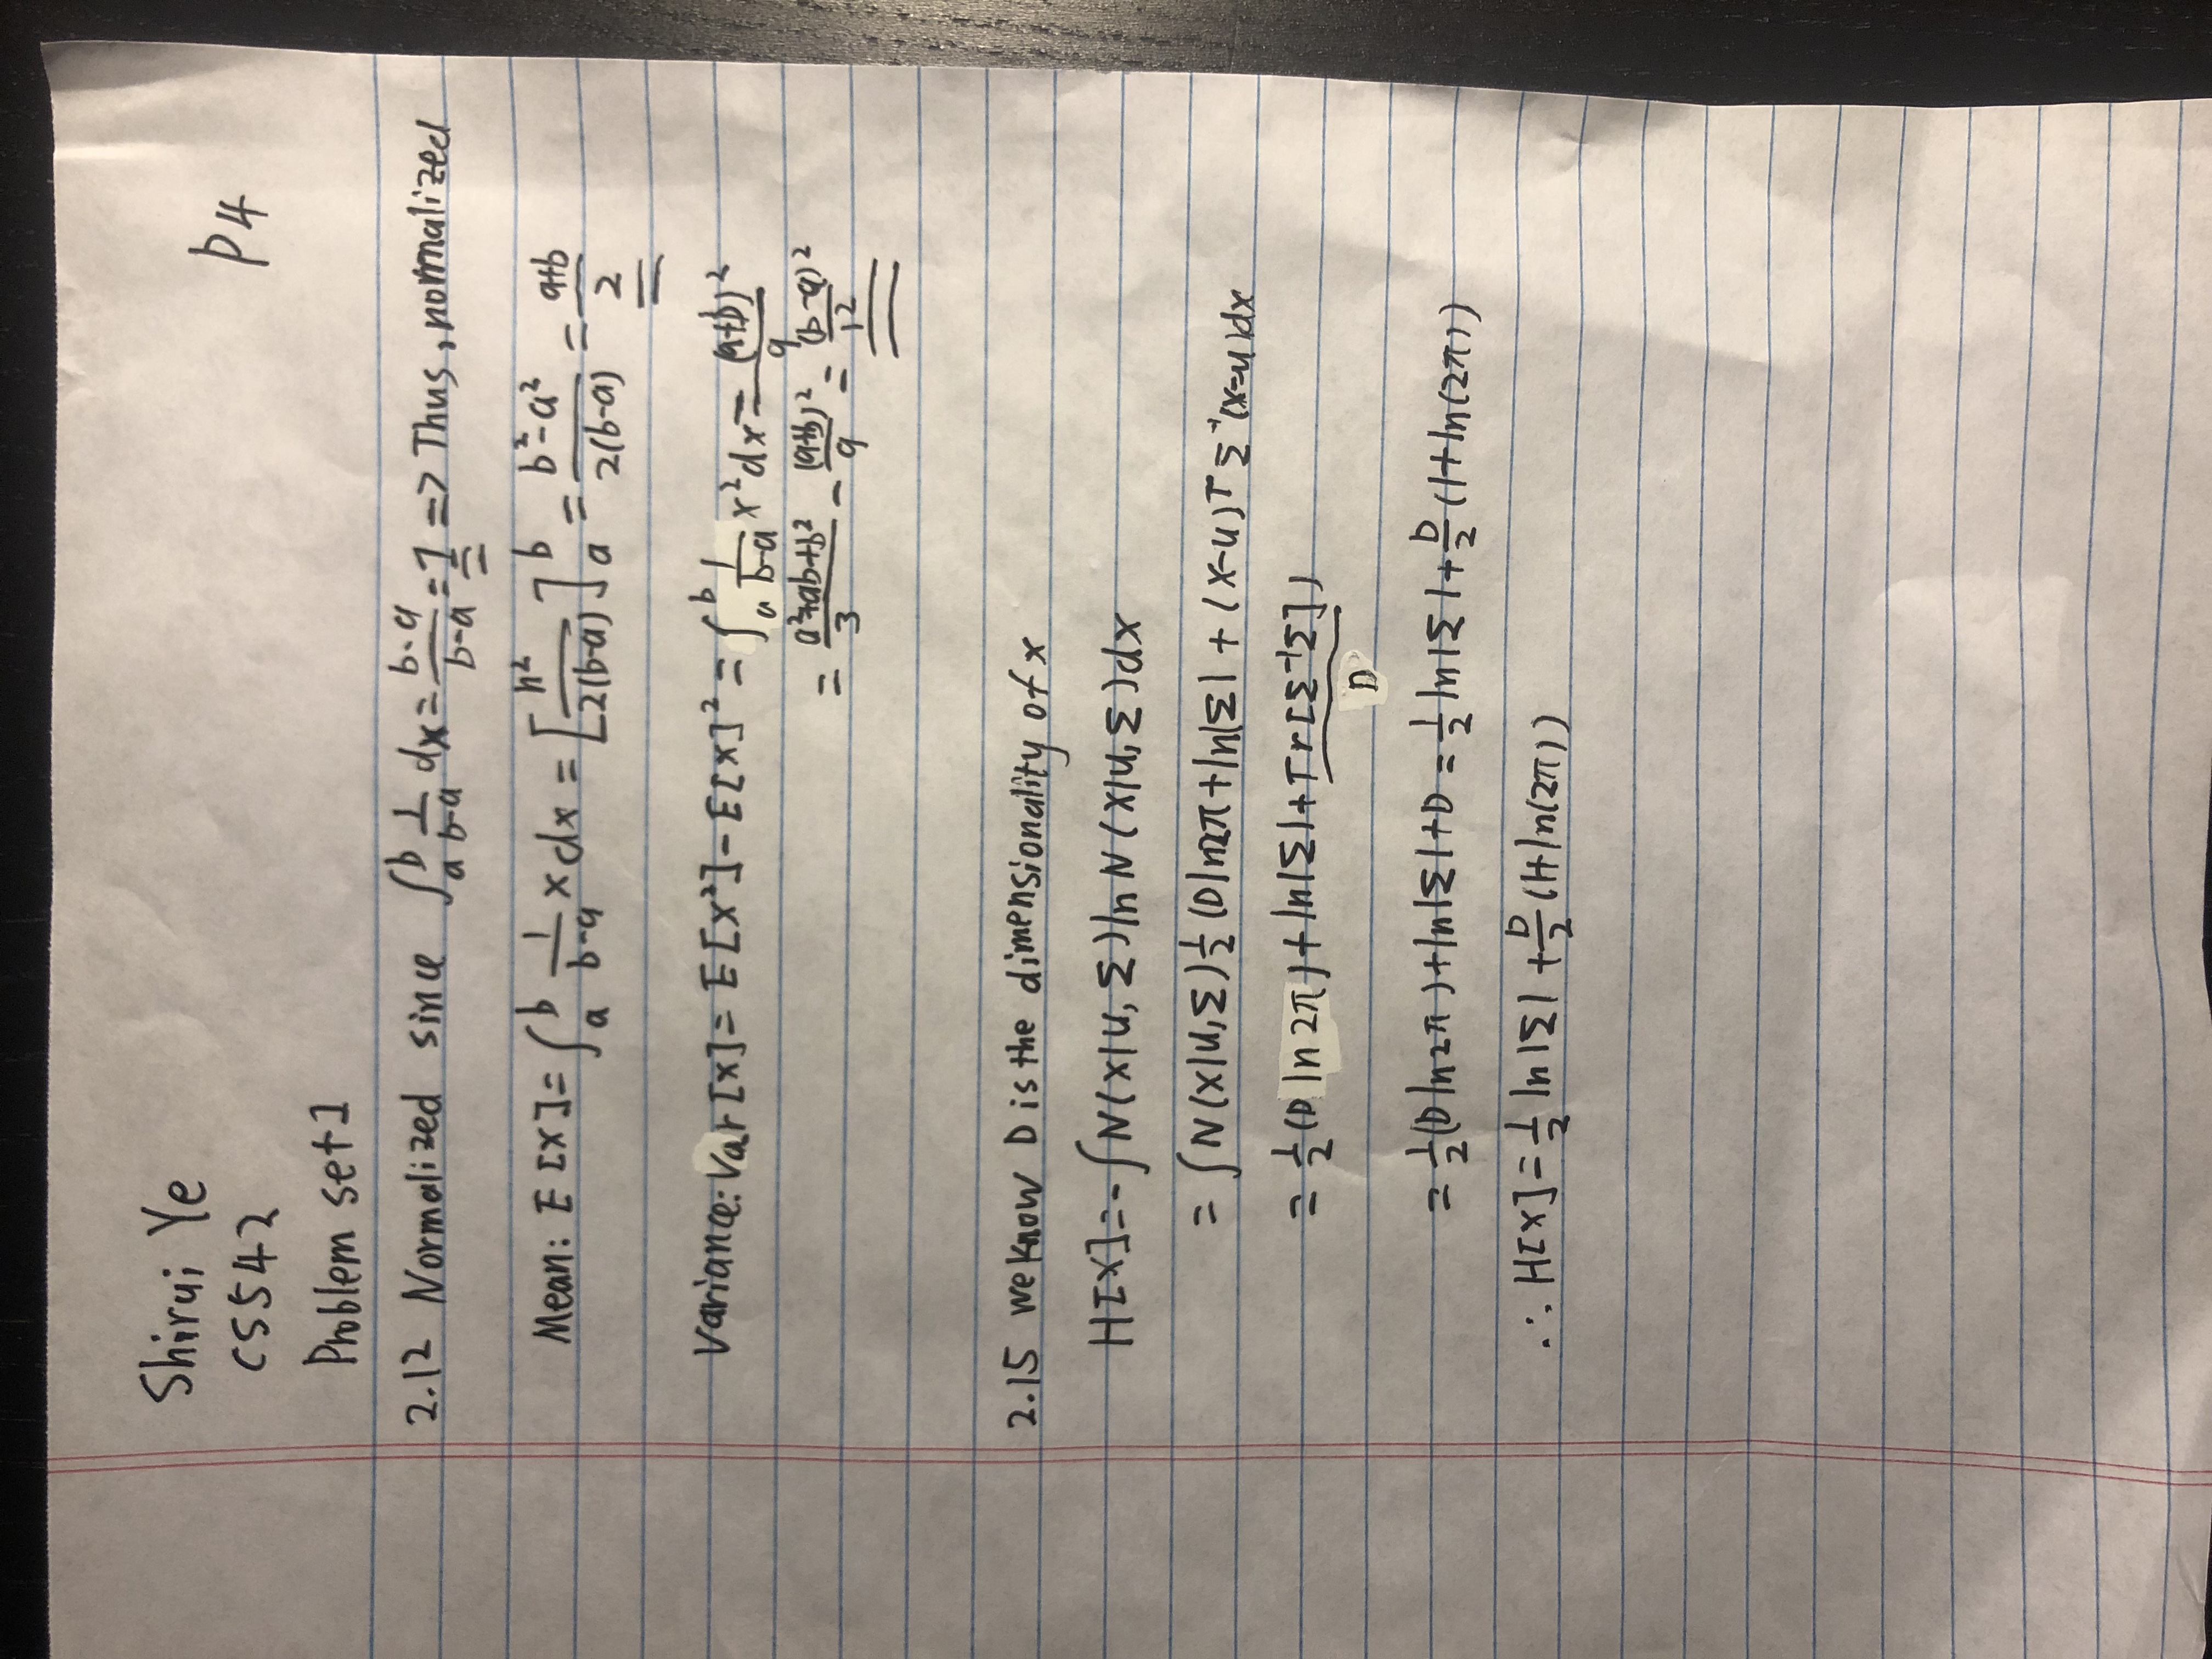 Shirui Ye
P4
CS542
Problem set1
2.12 Normalized since ∫_a^b 1/(b-a) dx = (b-a)/(b-a) = 1 => Thus, normalized
Mean: E[X] = ∫_a^b 1/(b-a) x dx = [n²/(2(b-a))]_a^b = (b²-a²)/(2(b-a)) = (a+b)/2
Variance: Var[x] = E[X²] - E[X]² = ∫_a^b 1/(b-a) x² dx = (a+b)²/9
= (a²+ab+b²)/3 - (a+b)²/9 = (b-a)²/12
2.15 we know D is the dimensionality of x
H[X] = -∫N(X|u,Σ) ln N(X|u,Σ)dx
= ∫N(X|u,Σ) 1/2 (D ln2π + ln|Σ| + (X-u)^T Σ^-1 (x-u) dx
= 1/2 (D ln 2π) + ln|Σ| + Tr[Σ^-1 Σ])
D
= 1/2 (D ln 2π) + ln|Σ| + D = 1/2 ln|Σ| + D/2 (1+ln(2π))
∴ H[X] = 1/2 ln|Σ| + D/2 (1+ln(2π))